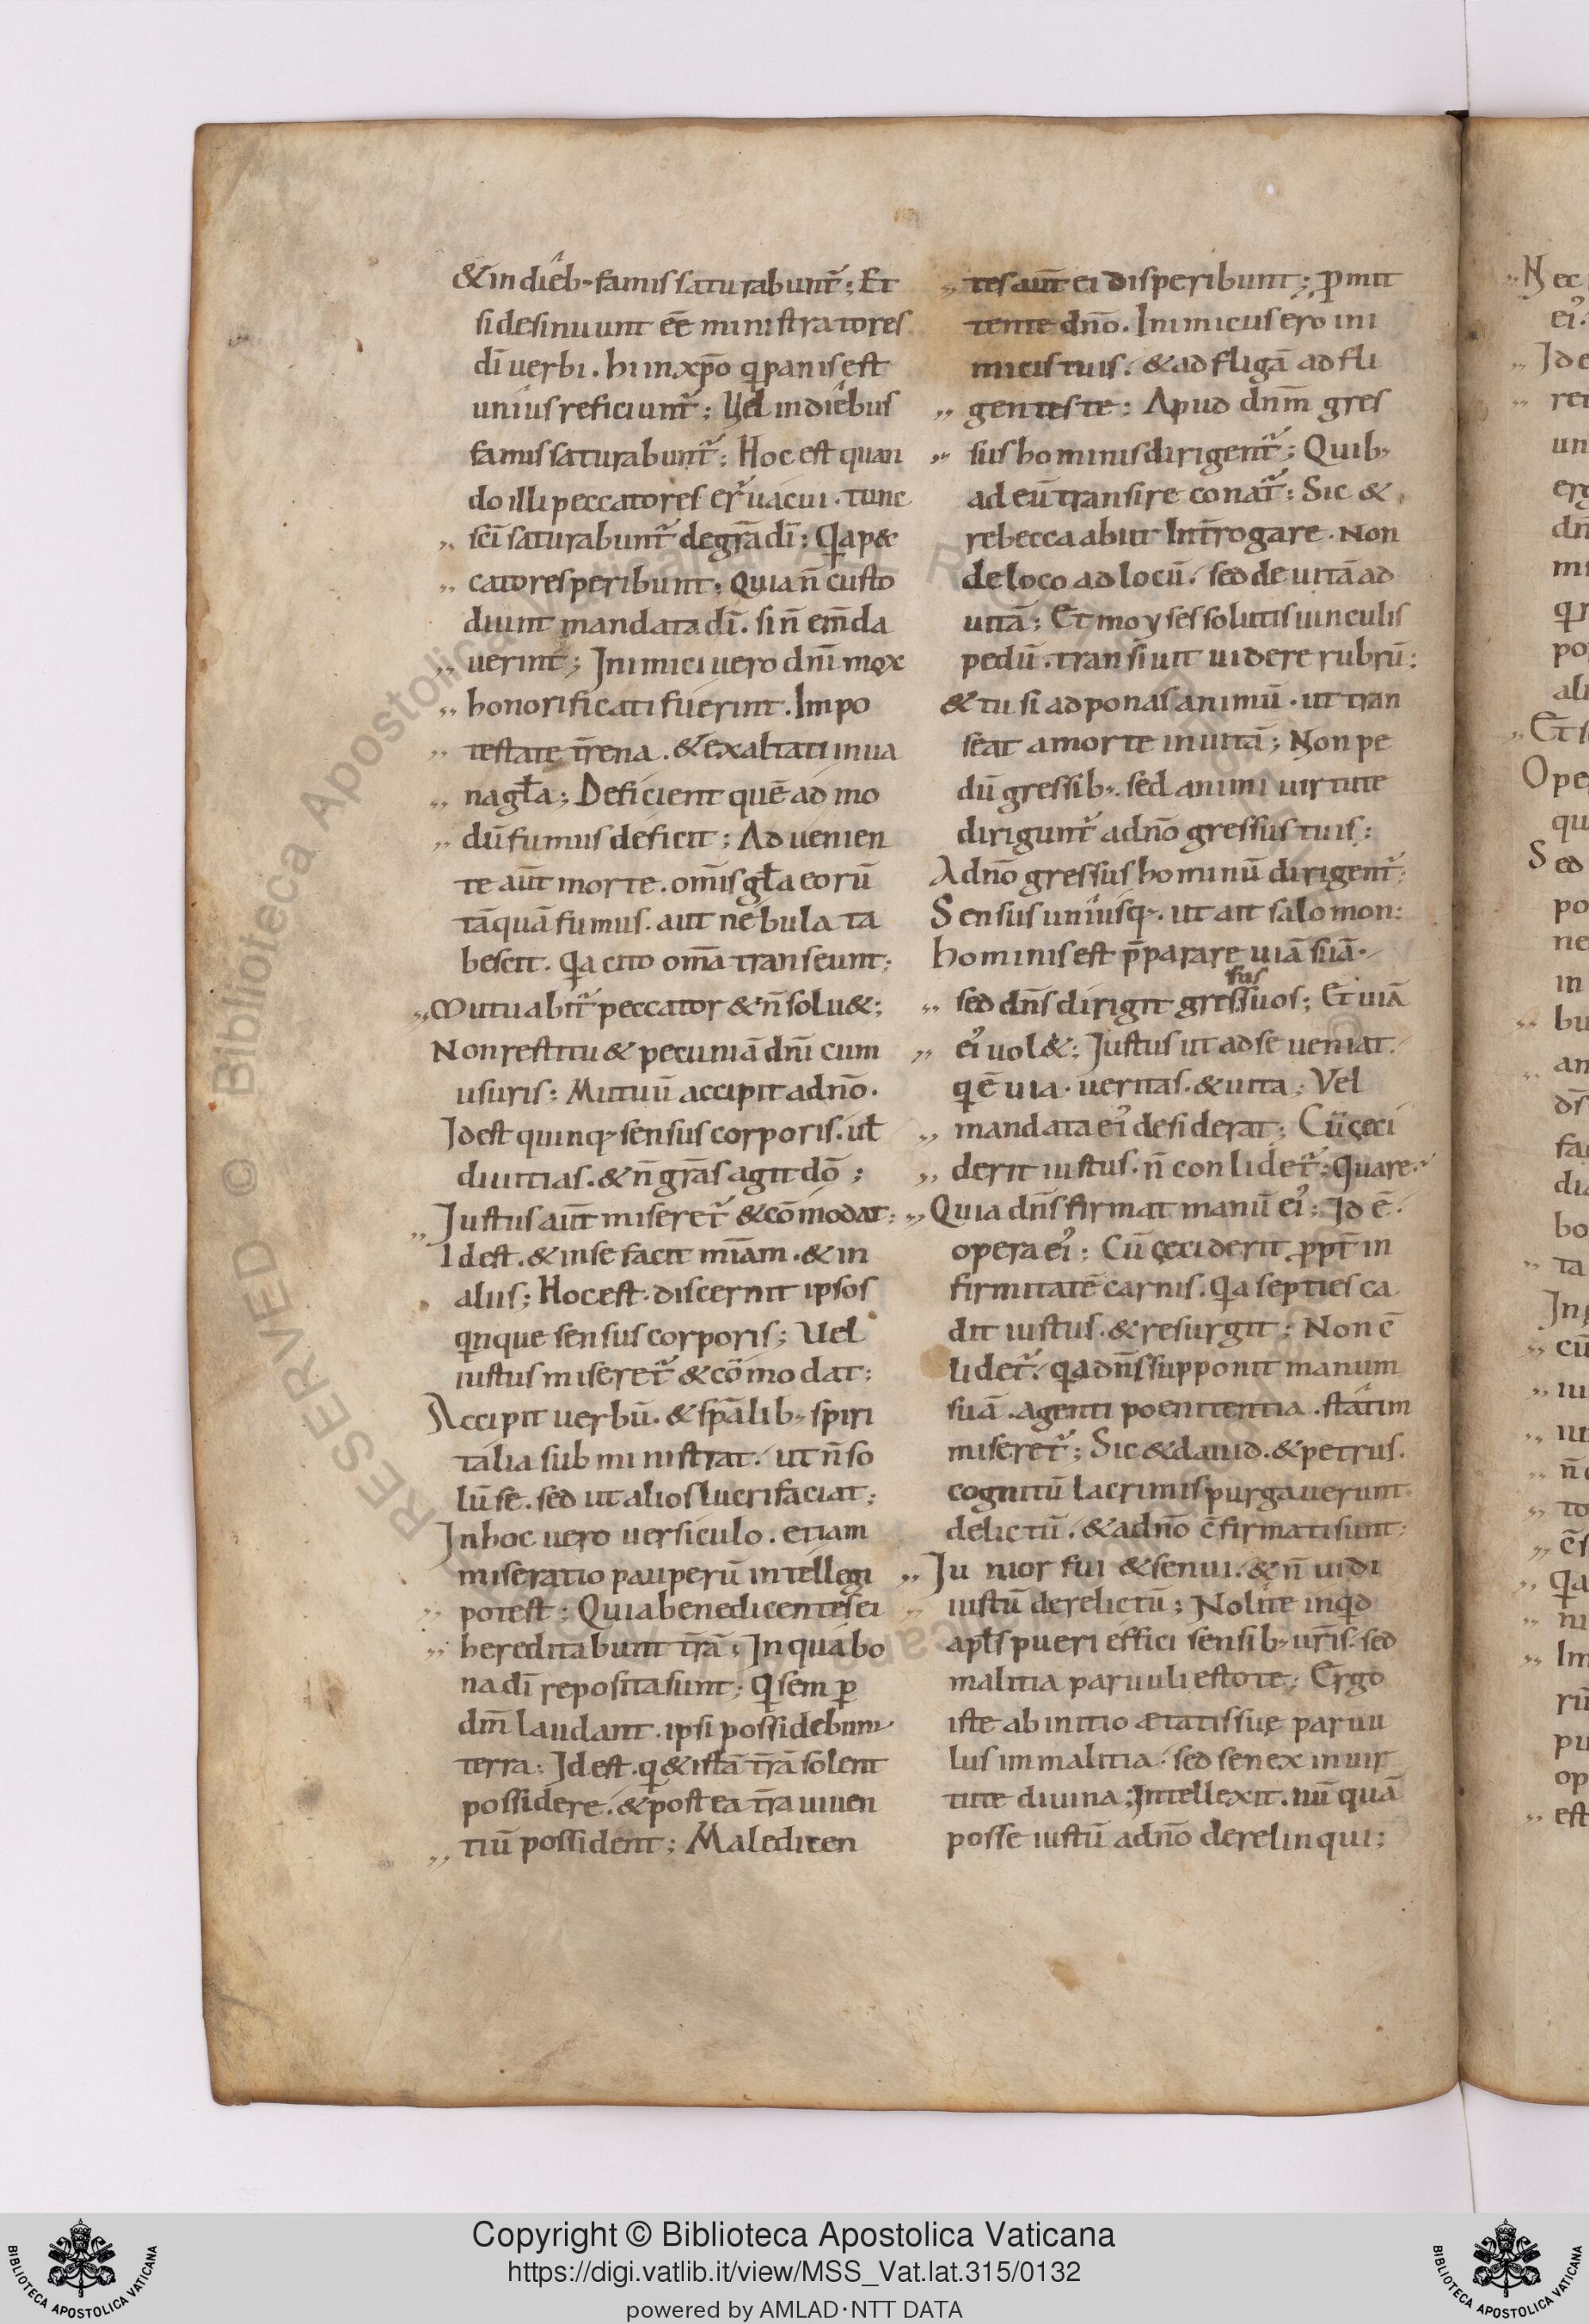 & in dieb; famis saturabunt᷑; Et
si desinuunt eē ministratores
dī uerbi. hi in xp̄o q̇ panis est
unius reficiunt᷑; Vel in diebus
famis saturabunt᷑; Hoc est quan
do illi peccatores er᷑ uacui. tunc
„ sc̄i saturabunt᷑ de gr̄a dī; Q̇a p&
„ catores peribunt; quia n̄ custo
diunt mandata dī. si n̄ em̄da
„ uerint; Inimici uero dn̄i mox
„ honorificati fuerint. In po
„ testate t̄rena. & exaltati in ua
„ na gl̄a; Deficient quē ad mo
„ dū fumus deficit; Ad uenien
te aūt morte. om̄is gl̄a eorū
tāquā fumus. aut nebula ta
bescit. Q̇a cito om̄a transeunt;
„ Mutuabit᷑ peccator & n̄ solu&;
Non restitu& pecuniā dn̄i cum
usuris; Mutuū accipit a dn̄o.
Id est quinq; sensus corporis. ul̄
diuitias. & n̄ gr̄as agit dō;
„ Iustus aūt miseret᷑ & cōmodat;
Id est. & in se facit mīam. & in
aliis; Hoc est. discernit ipsos
qinque sensus corporis; Uel
iustus miseret᷑ & cōmodat;
Accipit uerbū. & sp̄alib; spiri
talia sub ministrat. ut n̄ so
lū se. sed ut alios lucrifaciat;
In hoc uero uersiculo. etiam
miseratio pauperū intellegi
„ potest; Quia benedicentes ei
„ hereditabunt t̄rā; In qua bo
na dī reposita sunt; Qi semp̄
dm̄ laudant. ipsi possidebunt
terra; Id est. qi & istā t̄rā solent
possidere. & postea t̄ra uiuen
„ tiū possident; Maledicen
„ tes aūt ei disperibunt; ꝓmit
tente dn̄o. Inimicus ero ini
micis tuis. & adfligā adfli
„ gentes te; Apud dn̄m gres
„ sus hominis dirigent᷑; Quib;
ad eū transire conat᷑; Sic &
rebecca abiit Int̄rogare. Non
de loco ad locū. sed de uitā ad
uitā; Et moyses solutis uinculis
pedū. transiuit uidere rubrū;
& tu si adponas animū. ut tran
seat a morte in uitā; Non pe
dū gressib;. sed animi uirtute
dirigunt᷑ ad n̄o gressus tuis;
A dn̄o gressus hominū dirigent᷑;
Sensus uniusq;. ut ait salomon;
hominis est p̄parare uiā suā.
sus
„ sed dn̄s dirigit gressuos; Et uiā
„ ei᾽ uol&; Iustus ut ad se ueniat.
q ē uia. ueritas. & uita; Vel
„ mandata ei᾽ desiderat; Cū ceci
„ derit iustus. n̄ conlidet᷑; Quare.
„ Quia dn̄s firmat manū ei᾽; Id ē.
opera ei᾽; Cū ceciderit ꝓpt̄ in
firmitatē carnis. Q̇a septies ca
dit iustus. & resurgit; Non c̄
lidet᷑. q̇a dn̄s supponit manum
suā. agenti poenitentia. statim
miseret᷑; Sic & dauid. & petrus.
cognitū lacrimis purgauerunt
delictū. & a dn̄o c̄firmati sunt;
„ Iunior fui & senui. & n̄ uidi
„ iustū derelictū; Nolite inqd
apl̄s pueri effici sensib; ur̄is. sed
malitia paruuli estote; Ergo
iste ab initio ætatis suę paruu
lus in malitia. sed senex in uir
tute diuina; Intellexit. nū quā
posse iustū a dn̄o derelinqui;
Copyright © Biblioteca Apostolica Vaticana
https://digi.vatlib.it/view/MSS_Vat.lat.315/0132
powered by AMLAD·NTT DATA